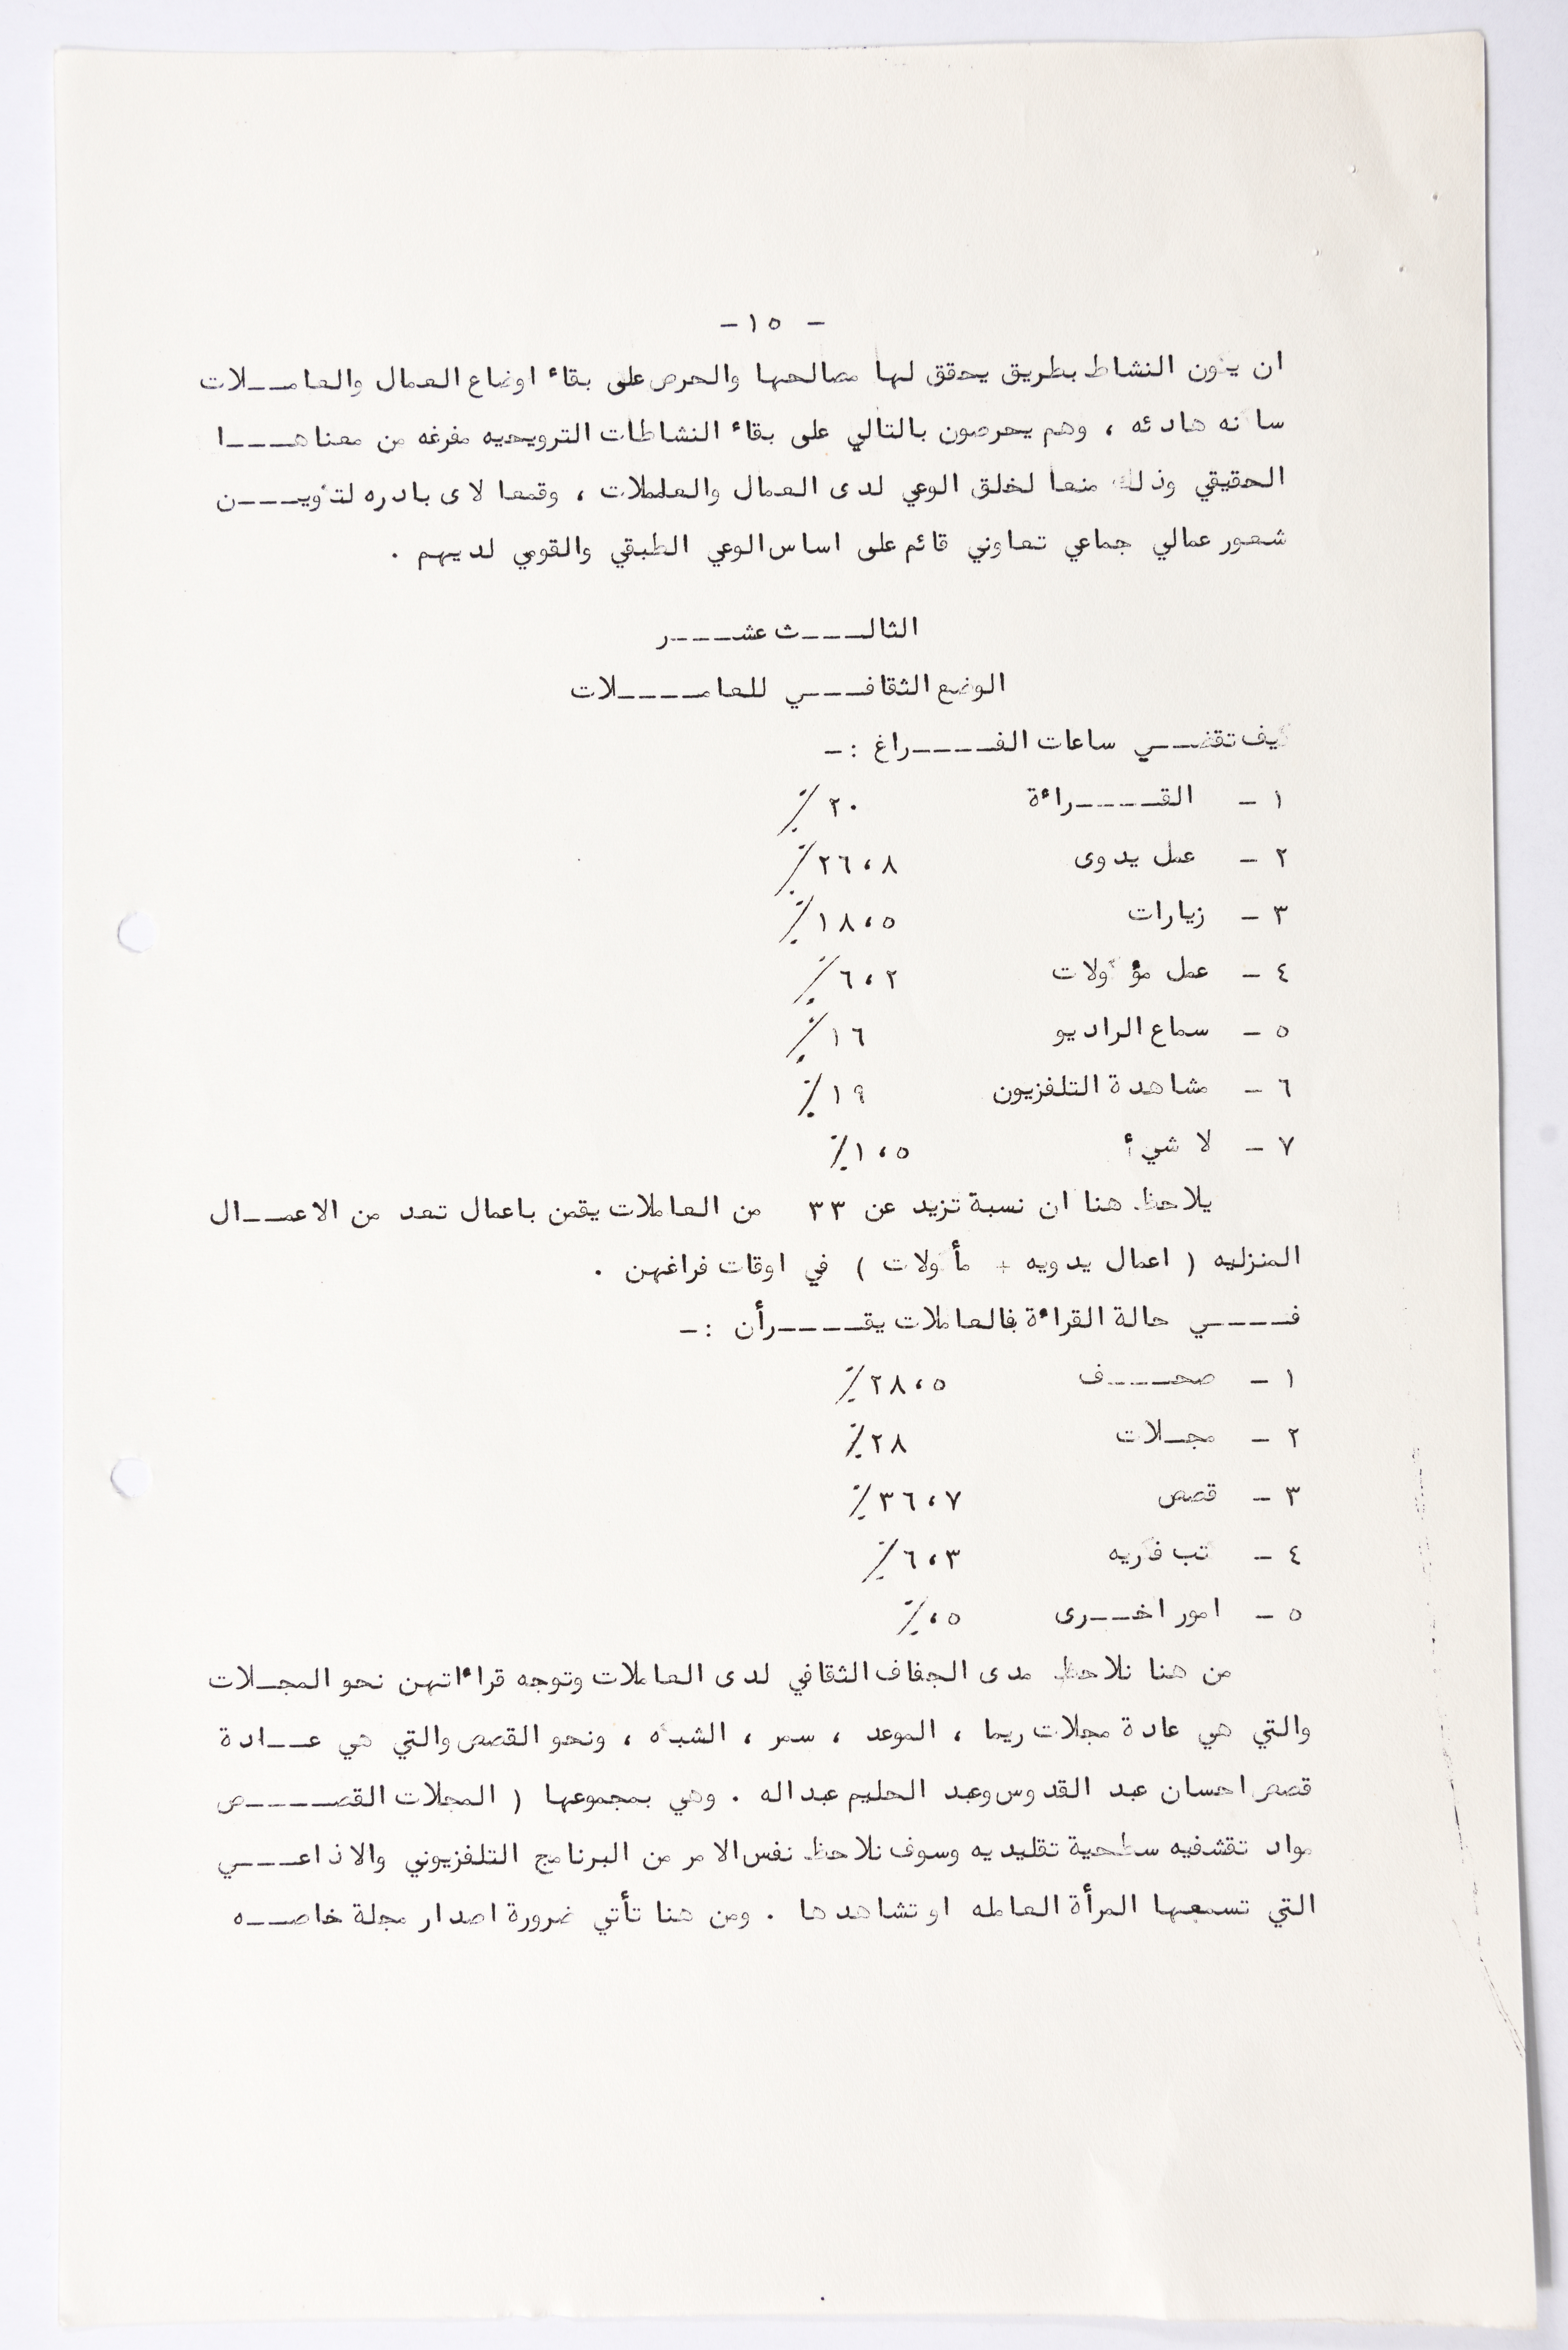 - ١٥ -
ان يكون النشاط بطريق يحقق لها مصالحها والحرص على بقاء اوضاع العمال والعامـــلات
ساكنه هادئه ، وهم يحرصون بالتالي على بقاء النشاطات الترويحيه مفرغه من معناهــــا
الحقيقي وذلك منعا لخلق الوعي لدى العمال والعاملات ، وقمعا لاى بادره لتكويــــن
شعور عمالي جماعي تعاوني قائم على اساس الوعي الطبقي والقومي لديهم .
الثالـــــث عشــــر
الوضع الثقافــــي للعامـــــلات
كيف تقضـــي ساعات الفـــــراغ :-
١ - القـــــراءة ٢٠ ٪
٢ - عمل يدوى ٢٦،٨٪
٣ - زيارات ١٨،٥٪
٤ - عمل مؤكولات ٦،٢٪
٥ - سماع الراديو ١٦٪
٦ - مشاهدة التلفزيون ١٩٪
٧ - لا شيء أ ١،٥٪
يلاحظ هنا ان نسبة تزيد عن ٣٣ من العاملات يقمن باعمال تعد من الاعمـــال
المنزليه ( اعمال يدويه + مأكولات ) في اوقات فراغهن .
فــــــي حالة القراءة فالعاملات يقـــــرأن :-
١ - صحـــــف ٢٨،٥٪
٢ - مجـلات ٢٨٪
٣ - قصص ٣٦،٧٪
٤ - كتب فكريه ٦،٣٪
٥ - امور اخـــرى ،٥٪
من هنا نلاحظ مدى الجفاف الثقافي لدى العاملات وتوجه قراءاتهن نحو المجـلات
والتي هي عادة مجلات ريما ، الموعد ، سمر ، الشبكه ، ونحو القصص والتي هي عـــادة
قصص احسان عبد القدوس وعبد الحليم عبداله . وهي بمجموعها ( المجلات القصـــــص
مواد تقثفيه سطحية تقليديه وسوف نلاحظ نفس الامر من البرنامج التلفزيوني والاذاعــــي
التي تسمعها المرأة العامله او تشاهدها . ومن هنا تأتي ضرورة اصدار مجلة خاصـــه